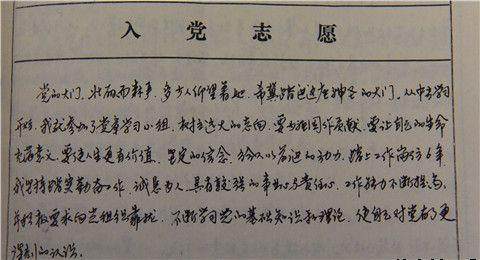 入党志愿
党的大门，壮丽而，多少人仰望着她，希冀踏进这座神圣的大门。从中学学习
开始，我就参加了党章学习小组，树立远大的志向，要为祖国作贡献，要让自己的生命
充满意义，要使人生更有价值。坚定的信念，给人以前进的动力，踏上工作岗位6年，
我坚持踏实勤奋工作，诚恳为人，具有较强的事业心与责任心，工作努力不断提高，
并积极要求向党组织靠拢，不断学习党的基础知识和理论，使自己对党有了更
深刻的认识。